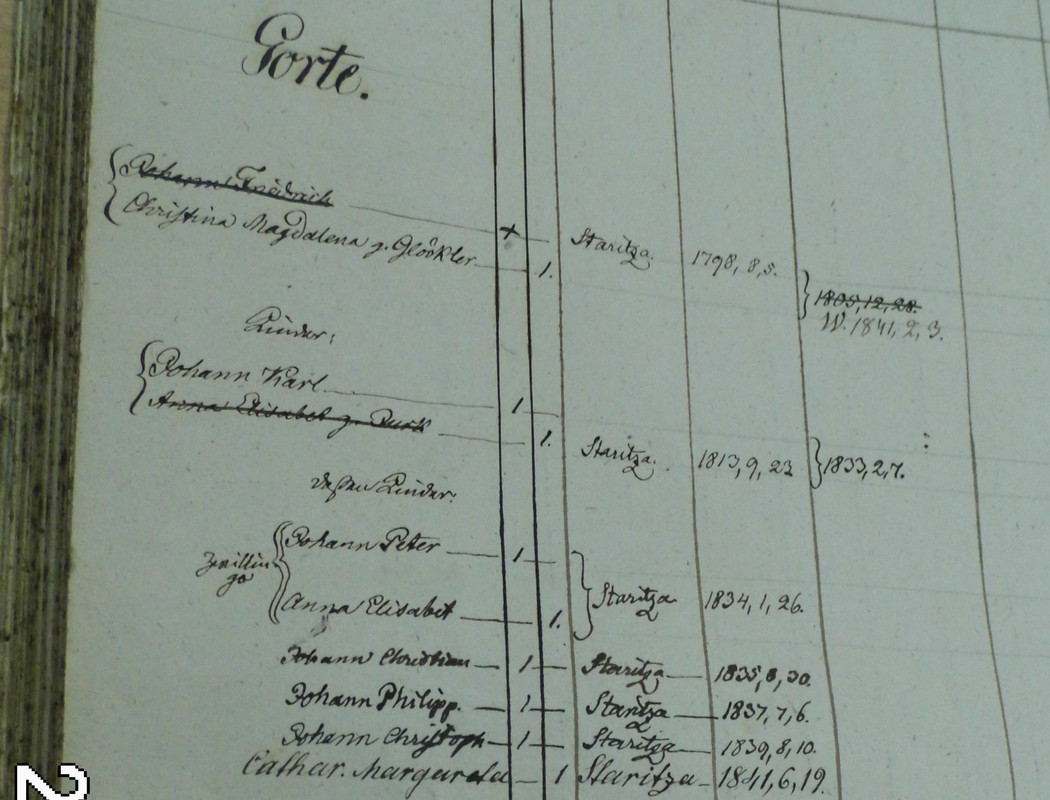 Gorte.
Johann Friedrich + Staritza 1798, 8, 5.
Christina Magdalena g. Glöckler 1.
1805, 12, 28.
W. 1841, 2, 3.
Kinder:
Johann Karl 1
Anna Elisabet g. 1. Staritza. 1813, 9, 23 1833, 2, 7.
dessen Kinder:
Zwillin
ge
Johann Peter 1
Staritza 1834, 1, 26.
Anna Elisabet 1.
Johann Christian 1 Staritza 1835, 8, 30.
Johann Philipp. 1 Staritza 1837, 7, 6.
Johann Christoph 1 Staritza 1839, 8, 10.
Cathar. Margareta 1 Staritza 1841, 6, 19.
2